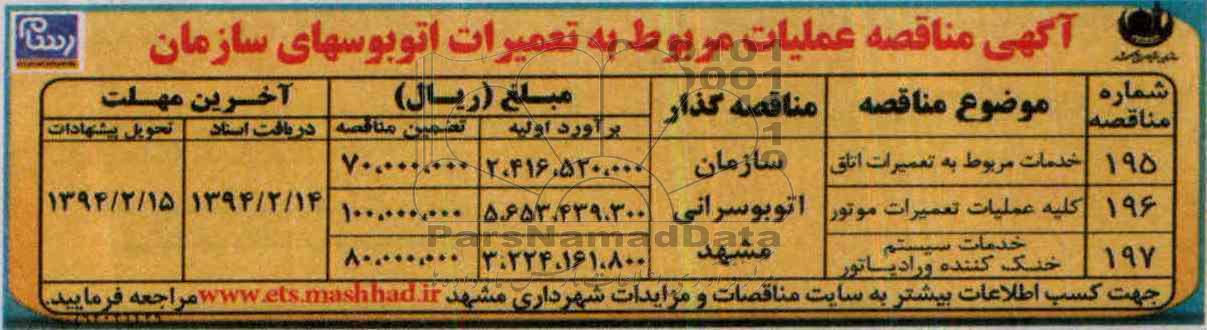 آگهی مناقصه عملیات مربوط به تعمیرات اتوبوسهای سازمان
شماره مناقصه | موضوع مناقصه | مناقصه گذار | مبلغ (ریال) | آخرین مهلت
برآورد اولیه | تضمین مناقصه | دریافت اسناد | تحویل پیشنهادات
۱۹۵ | خدمات مربوط به تعمیرات اتاق | سازمان اتوبوسرانی مشهد | ۲،۴۱۶،۵۲۰،۰۰۰ | ۷۰،۰۰۰،۰۰۰ | ۱۳۹۴/۲/۱۴ | ۱۳۹۴/۲/۱۵
۱۹۶ | کلیه عملیات تعمیرات موتور | ۵،۶۵۳،۴۳۹،۳۰۰ | ۱۰۰،۰۰۰،۰۰۰
۱۹۷ | خدمات سیستم خنک کننده ورادیاتور | ۳،۲۲۴،۱۶۱،۸۰۰ | ۸۰،۰۰۰،۰۰۰
جهت کسب اطلاعات بیشتر به سایت مناقصات و مزایدات شهرداری مشهد www.ets.mashhad.ir مراجعه فرمایید.
ParsNamadData